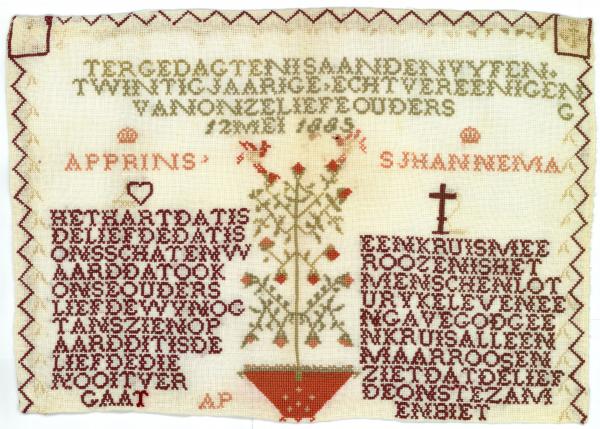 TERGEDAGTENISAANDENVYFEN
TWINTIGJAARIGE·ECHTVEREENIGEN
G
VANONZELIEFEOUDERS
12MEI 1885
APPRINS
SJHANNEMA
HETHARTDATIS
DELIEFDEDATIS
ONSSCHATENW
AARDDATOOK
ONZEOUDERS
LIEFDEWYNOG
TANSZIENOP
AARDDITISDE
LIEFDEDIE
NOOITVER
GAAT
AP
EENKRUISMEE
ROOZENISHET
MENSCHENLOT
URYKELEVENEE
NGAVEGODGEE
NKRUISALLEEN
MAARROOSEN
ZIETDATDELIEF
DEONSTEZAM
ENBIET